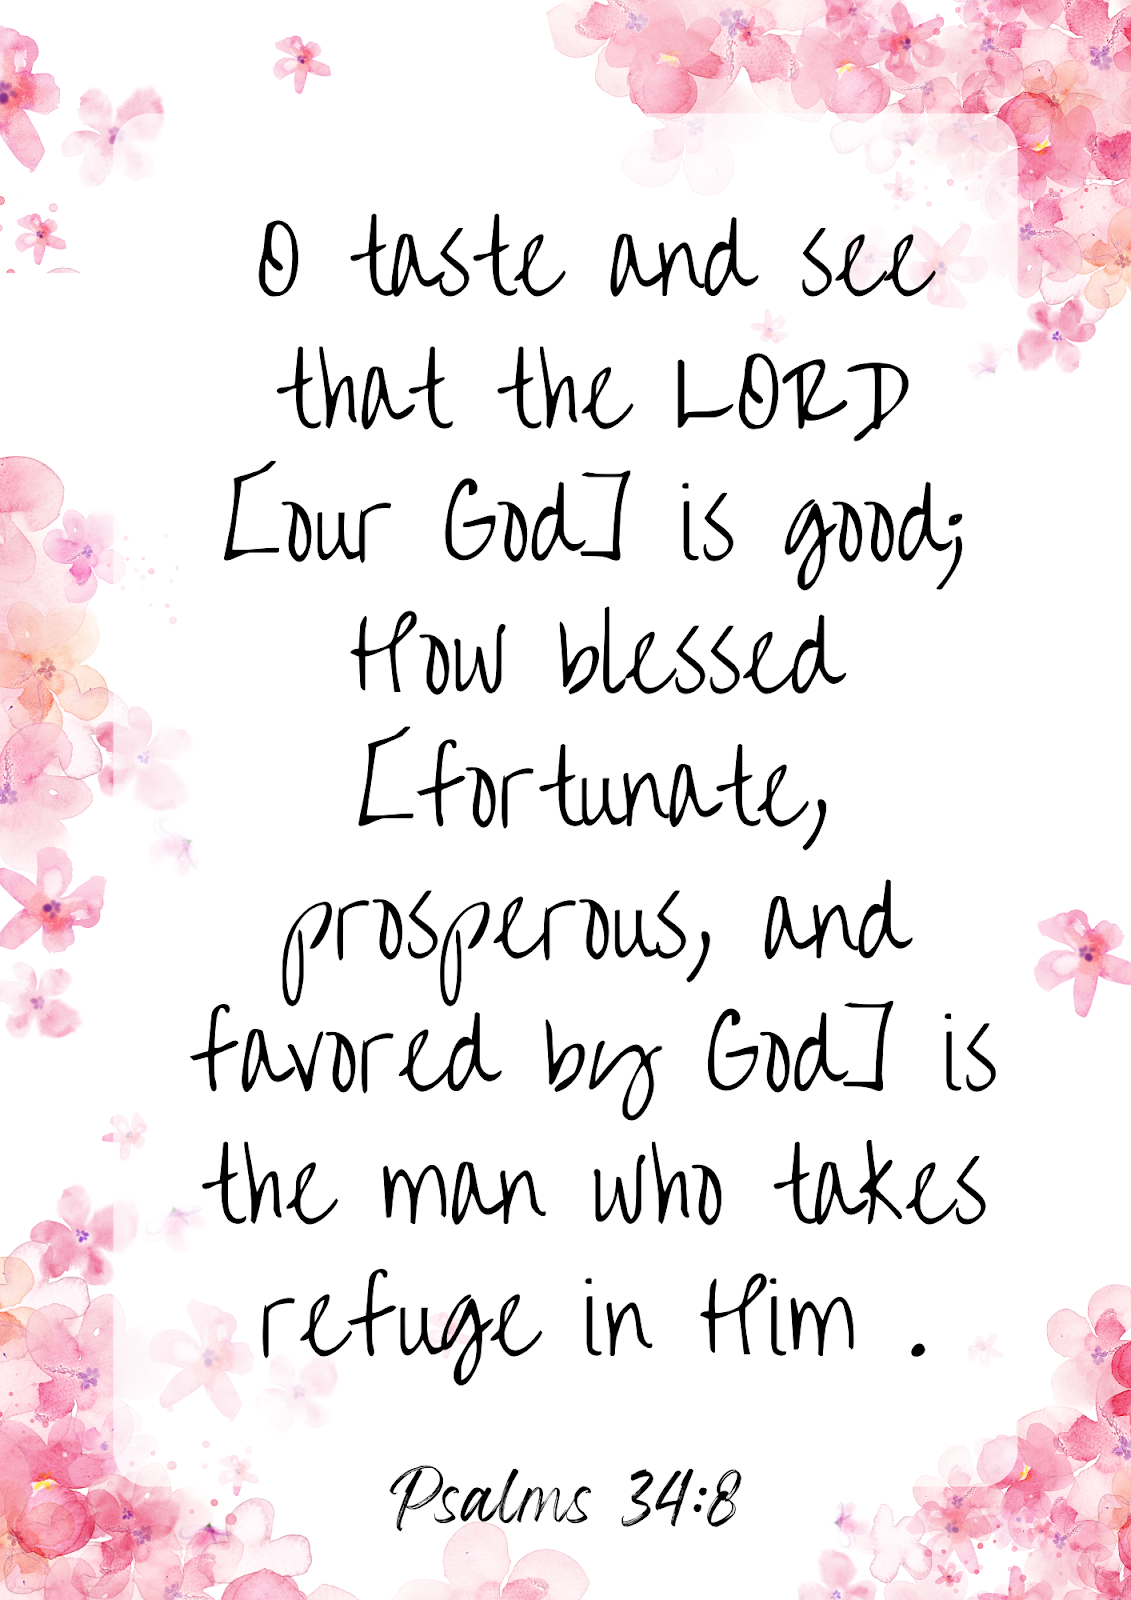 O taste and see
that the LORD
[our God] is good;
How blessed
[fortunate,
prosperous, and
favored by God] is
the man who takes
refuge in Him .
Psalms 34:8